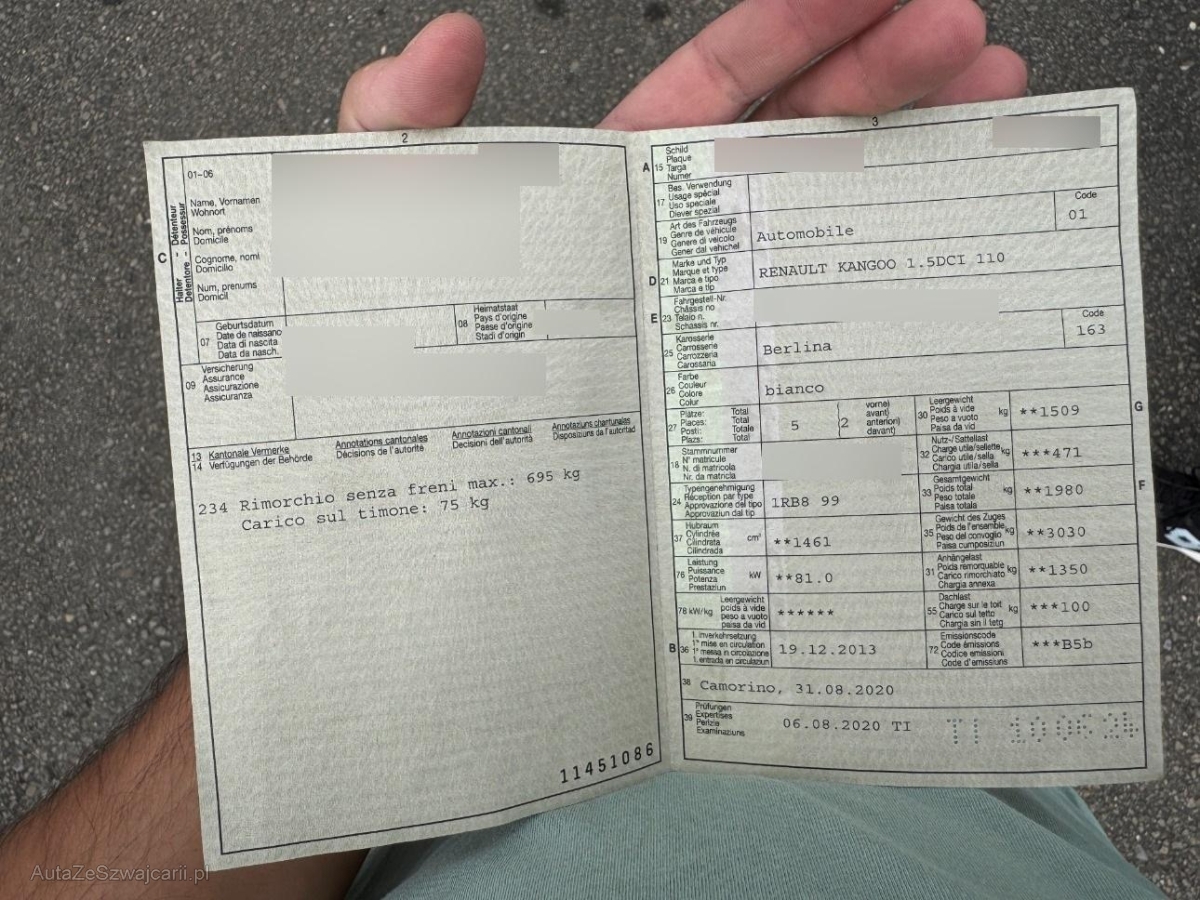 2
01-06
Halter - Détenteur
Detentore - Possessur
C
Name, Vornamen
Wohnort
Nom, prénoms
Domicile
Cognome, nomi
Domicilio
Num, prenums
Domicil
07
Geburtsdatum
Date de naissance
Data di nascita
Data da nasch.
08
Heimatstaat
Pays d'origine
Paese d'origine
Stadi d'origin
09
Versicherung
Assurance
Assicurazione
Assicuranza
13 Kantonale Vermerke
14 Verfügungen der Behörde
Annotations cantonales
Décisions de l'autorité
Annotazioni cantonali
Decisioni dell'autorità
Annotaziuns chantunalas
Disposiziuns da l'autoritad
234 Rimorchio senza freni max.: 695 kg
Carico sul timone: 75 kg
11451086
3
A 15
Schild
Plaque
Targa
Numer
17
Bes. Verwendung
Usage spécial
Uso speciale
Diever spezial
19
Art des Fahrzeugs
Genre de véhicule
Genere di veicolo
Gener dal vehichel
Automobile
Code
01
D 21
Marke und Typ
Marque et type
Marca e tipo
Marca e tip
RENAULT KANGOO 1.5DCI 110
E 23
Fahrgestell-Nr.
Châssis no
Telaio n.
Schassis nr.
25
Karosserie
Carrosserie
Carrozzeria
Carossaria
Berlina
Code
163
26
Farbe
Couleur
Colore
Colur
bianco
27
Plätze: Total
Places: Total
Posti: Totale
Plazs: Total
5
2
vorne)
avant)
anteriori)
davant)
30
Leergewicht
Poids à vide
Peso a vuoto
Paisa da vid
kg
**1509
G
18
Stammnummer
N° matricule
N. di matricola
Nr. da matricla
32
Nutz-/Sattellast
Charge utile/sellette
Carico utile/sella
Chargia utila/sella
kg
***471
24
Typengenehmigung
Réception par type
Approvazione del tipo
Approvaziun dal tip
1RB8 99
33
Gesamtgewicht
Poids total
Peso totale
Paisa totala
kg
**1980
F
37
Hubraum
Cylindrée
Cilindrata
Cilindrada
cm³
**1461
35
Gewicht des Zuges
Poids de l'ensemble
Peso del convoglio
Paisa cumposiziun
kg
**3030
76
Leistung
Puissance
Potenza
Prestaziun
kW
**81.0
31
Anhängelast
Poids remorquable
Carico rimorchiato
Chargia annexa
kg
**1350
78 kW/kg
Leergewicht
poids à vide
peso a vuoto
paisa da vid
******
55
Dachlast
Charge sur le toit
Carico sul tetto
Chargia sin il tetg
kg
***100
B 36
1. Inverkehrsetzung
1re mise en circulation
1a messa in circolazione
1. entrada en circulaziun
19.12.2013
72
Emissionscode
Code émissions
Codice emissioni
Code d'emissiuns
***B5b
38
Camorino, 31.08.2020
39
Prüfungen
Expertises
Perizie
Examinaziuns
06.08.2020 TI
AutaZeSzwajcarii.pl